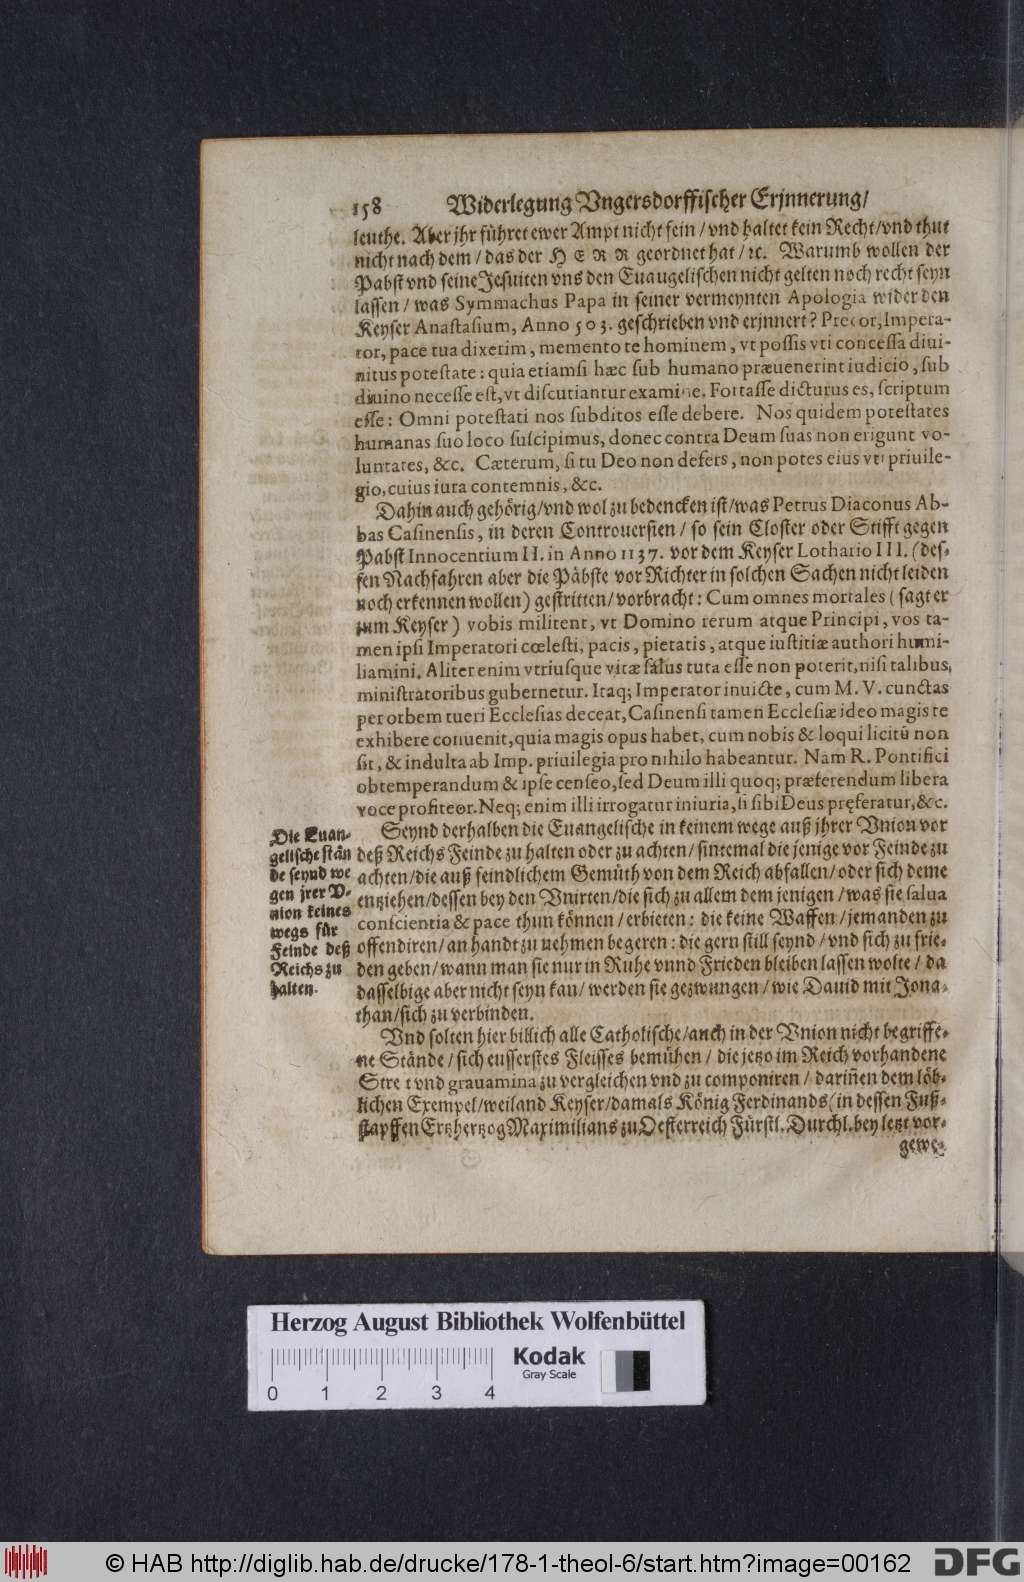 158 Widerlegung Vngersdorffischer Erjnnerung/
leuthe. Aber jhr führet ewer Ampt nicht fein / vnd haltet kein Recht/vnd thut
nicht nach dem / das der HERR geordnet hat / ꝛc. Warumb wollen der
Pabst vnd seine Jesuiten vns den Euaugelischen nicht gelten noch recht seyn
lassen / was Symmachus Papa in seiner vermeynten Apologia wider den
Keyser Anastasium, Anno 503. geschrieben vnd erjnnert? Precor, Impera-
tor, pace tua dixerim, memento te hominem, vt possis vti concessa diui-
nitus potestate: quia etiamsi hæc sub humano præuenerint iudicio, sub
diuino necesse est, vt discutiantur examine. Fortasse dicturus es, scriptum
esse: Omni potestati nos subditos esse debere. Nos quidem potestates
humanas suo loco suscipimus, donec contra Deum suas non erigunt vo-
luntates, &c. Cæterum, si tu Deo non defers, non potes eius vti priuile-
gio, cuius iura contemnis, &c.
Dahin auch gehörig/vnd wol zu bedencken ist/was Petrus Diaconus Ab-
bas Casinensis, in deren Controuersien / so sein Closter oder Stifft gegen
Pabst Innocentium II. in Anno 1137. vor dem Keyser Lothario III. (des-
sen Nachfahren aber die Päbste vor Richter in solchen Sachen nicht leiden
noch erkennen wollen) gestritten/vorbracht: Cum omnes mortales (sagt er
zum Keyser) vobis militent, vt Domino rerum atque Principi, vos ta-
men ipsi Imperatori cœlesti, pacis, pietatis, atque iustitiæ authori humi-
liamini. Aliter enim vtriusque vitæ salus tuta esse non poterit, nisi talibus,
ministratoribus gubernetur. Itaq; Imperator inuicte, cum M. V. cunctas
per orbem tueri Ecclesias deceat, Casinensi tamen Ecclesiæ ideo magis te
exhibere conuenit, quia magis opus habet, cum nobis & loqui licitũ non
sit, & indulta ab Imp. priuilegia pro nihilo habeantur. Nam R. Pontifici
obtemperandum & ipse censeo, sed Deum illi quoq; præferendum libera
voce profiteor. Neq; enim illi irrogatur iniuria, si sibi Deus pręferatur, &c.
Seynd derhalben die Euangelische in keinem wege auß jhrer Vnion vor
deß Reichs Feinde zu halten oder zu achten / sintemal die jenige vor Feinde zu
achten/die auß feindlichem Gemüth von dem Reich abfallen/oder sich deme
entziehen/dessen bey den Vnirten/die sich zu allem dem jenigen / was sie salua
conscientia & pace thun können / erbieten: die keine Waffen / jemanden zu
offendiren / an handt zu nehmen begeren: die gern still seynd / vnd sich zu frie-
den geben/wann man sie nur in Ruhe vnnd Frieden bleiben lassen wolte / da
dasselbige aber nicht seyn kan/ werden sie gezwungen / wie Dauid mit Jona-
than/sich zu verbinden.
Die Euan-
gelische stän
de seynd we
gen jrer V-
nion keines
wegs für
Feinde deß
Reichs zu
halten.
Vnd solten hier billich alle Catholische/auch in der Vnion nicht begriffe-
ne Stände / sich eusserstes Fleisses bemühen / die jetzo im Reich vorhandene
Stre t vnd grauamina zu vergleichen vnd zu componiren / dariñen dem löb-
lichen Exempel/weiland Keyser/damals König Ferdinands (in dessen Fuß-
stapffen Ertzhertzog Maximilians zu Oesterreich Fürstl. Durchl. bey letzt vor-
gewe-
Herzog August Bibliothek Wolfenbüttel
Kodak
Gray Scale
0 1 2 3 4
© HAB http://diglib.hab.de/drucke/178-1-theol-6/start.htm?image=00162 DFG